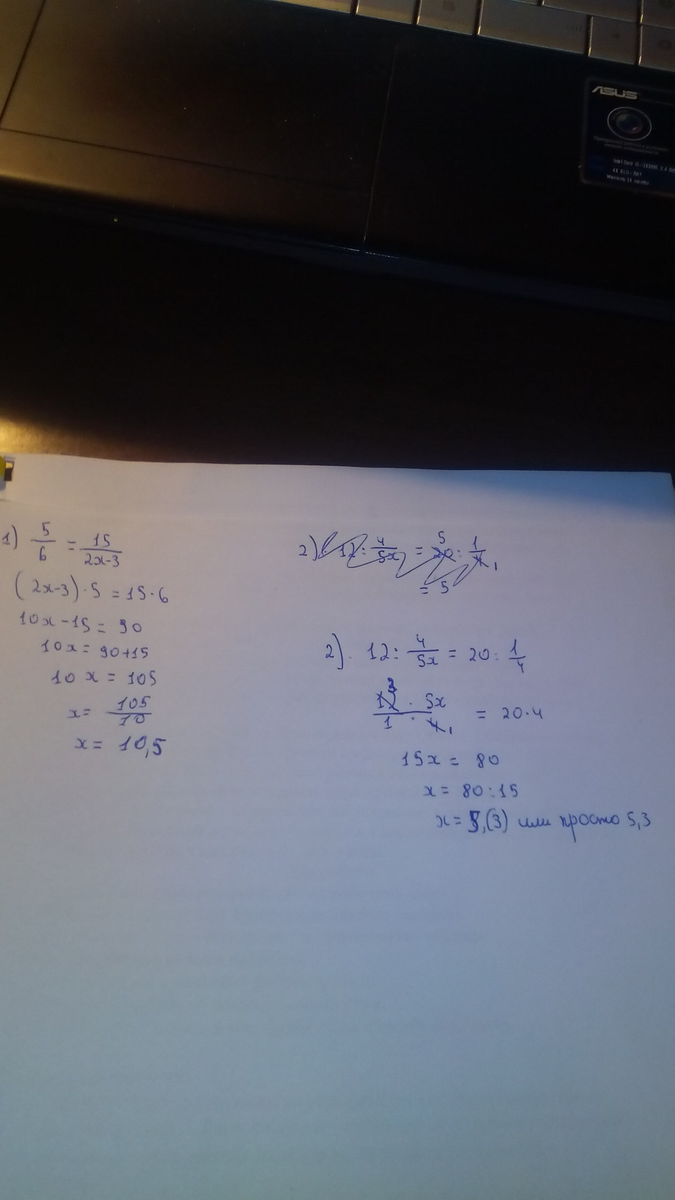 ASUS
1) 5/6 = 15/2x-3
(2x-3)·5 = 15·6
10x-15 = 90
10x = 90+15
10x = 105
x = 105/10
x = 10,5
2) 12 : 4/5x = 20 : 1/4
= 5
2). 12 : 4/5x = 20 : 1/4
12 3 · 5x / 1 · 4 1 = 20·4
15x = 80
x = 80:15
x = 5,(3) или просто 5,3